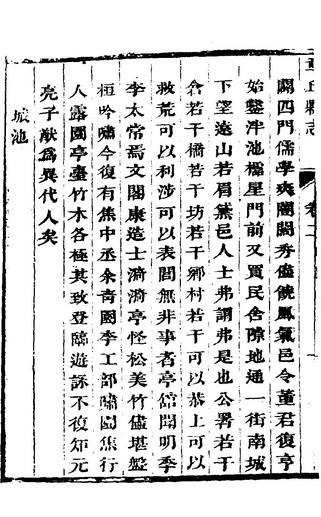 章丘縣志
卷二
闢四門儒學爽闓閎秀儘饒鳳氣邑令董君復亨
始鑿泮池櫺星門前又買民舍隙地通一街南城
下望遠山若眉黛邑人士弗謂弗是也公署若干
倉若干橋若干坊若干鄉村若干可以恭上可以
救荒可以利涉可以表閭無非事者亭館開明季
李太常焉文閣康造士漪漪亭怪松美竹儘堪盤
桓吟嘯今復有焦中丞余青園李工部嘯園焦行
人露園亭臺竹木各極其致登臨遊詠不復知元
亮子猷為異代人矣
城池